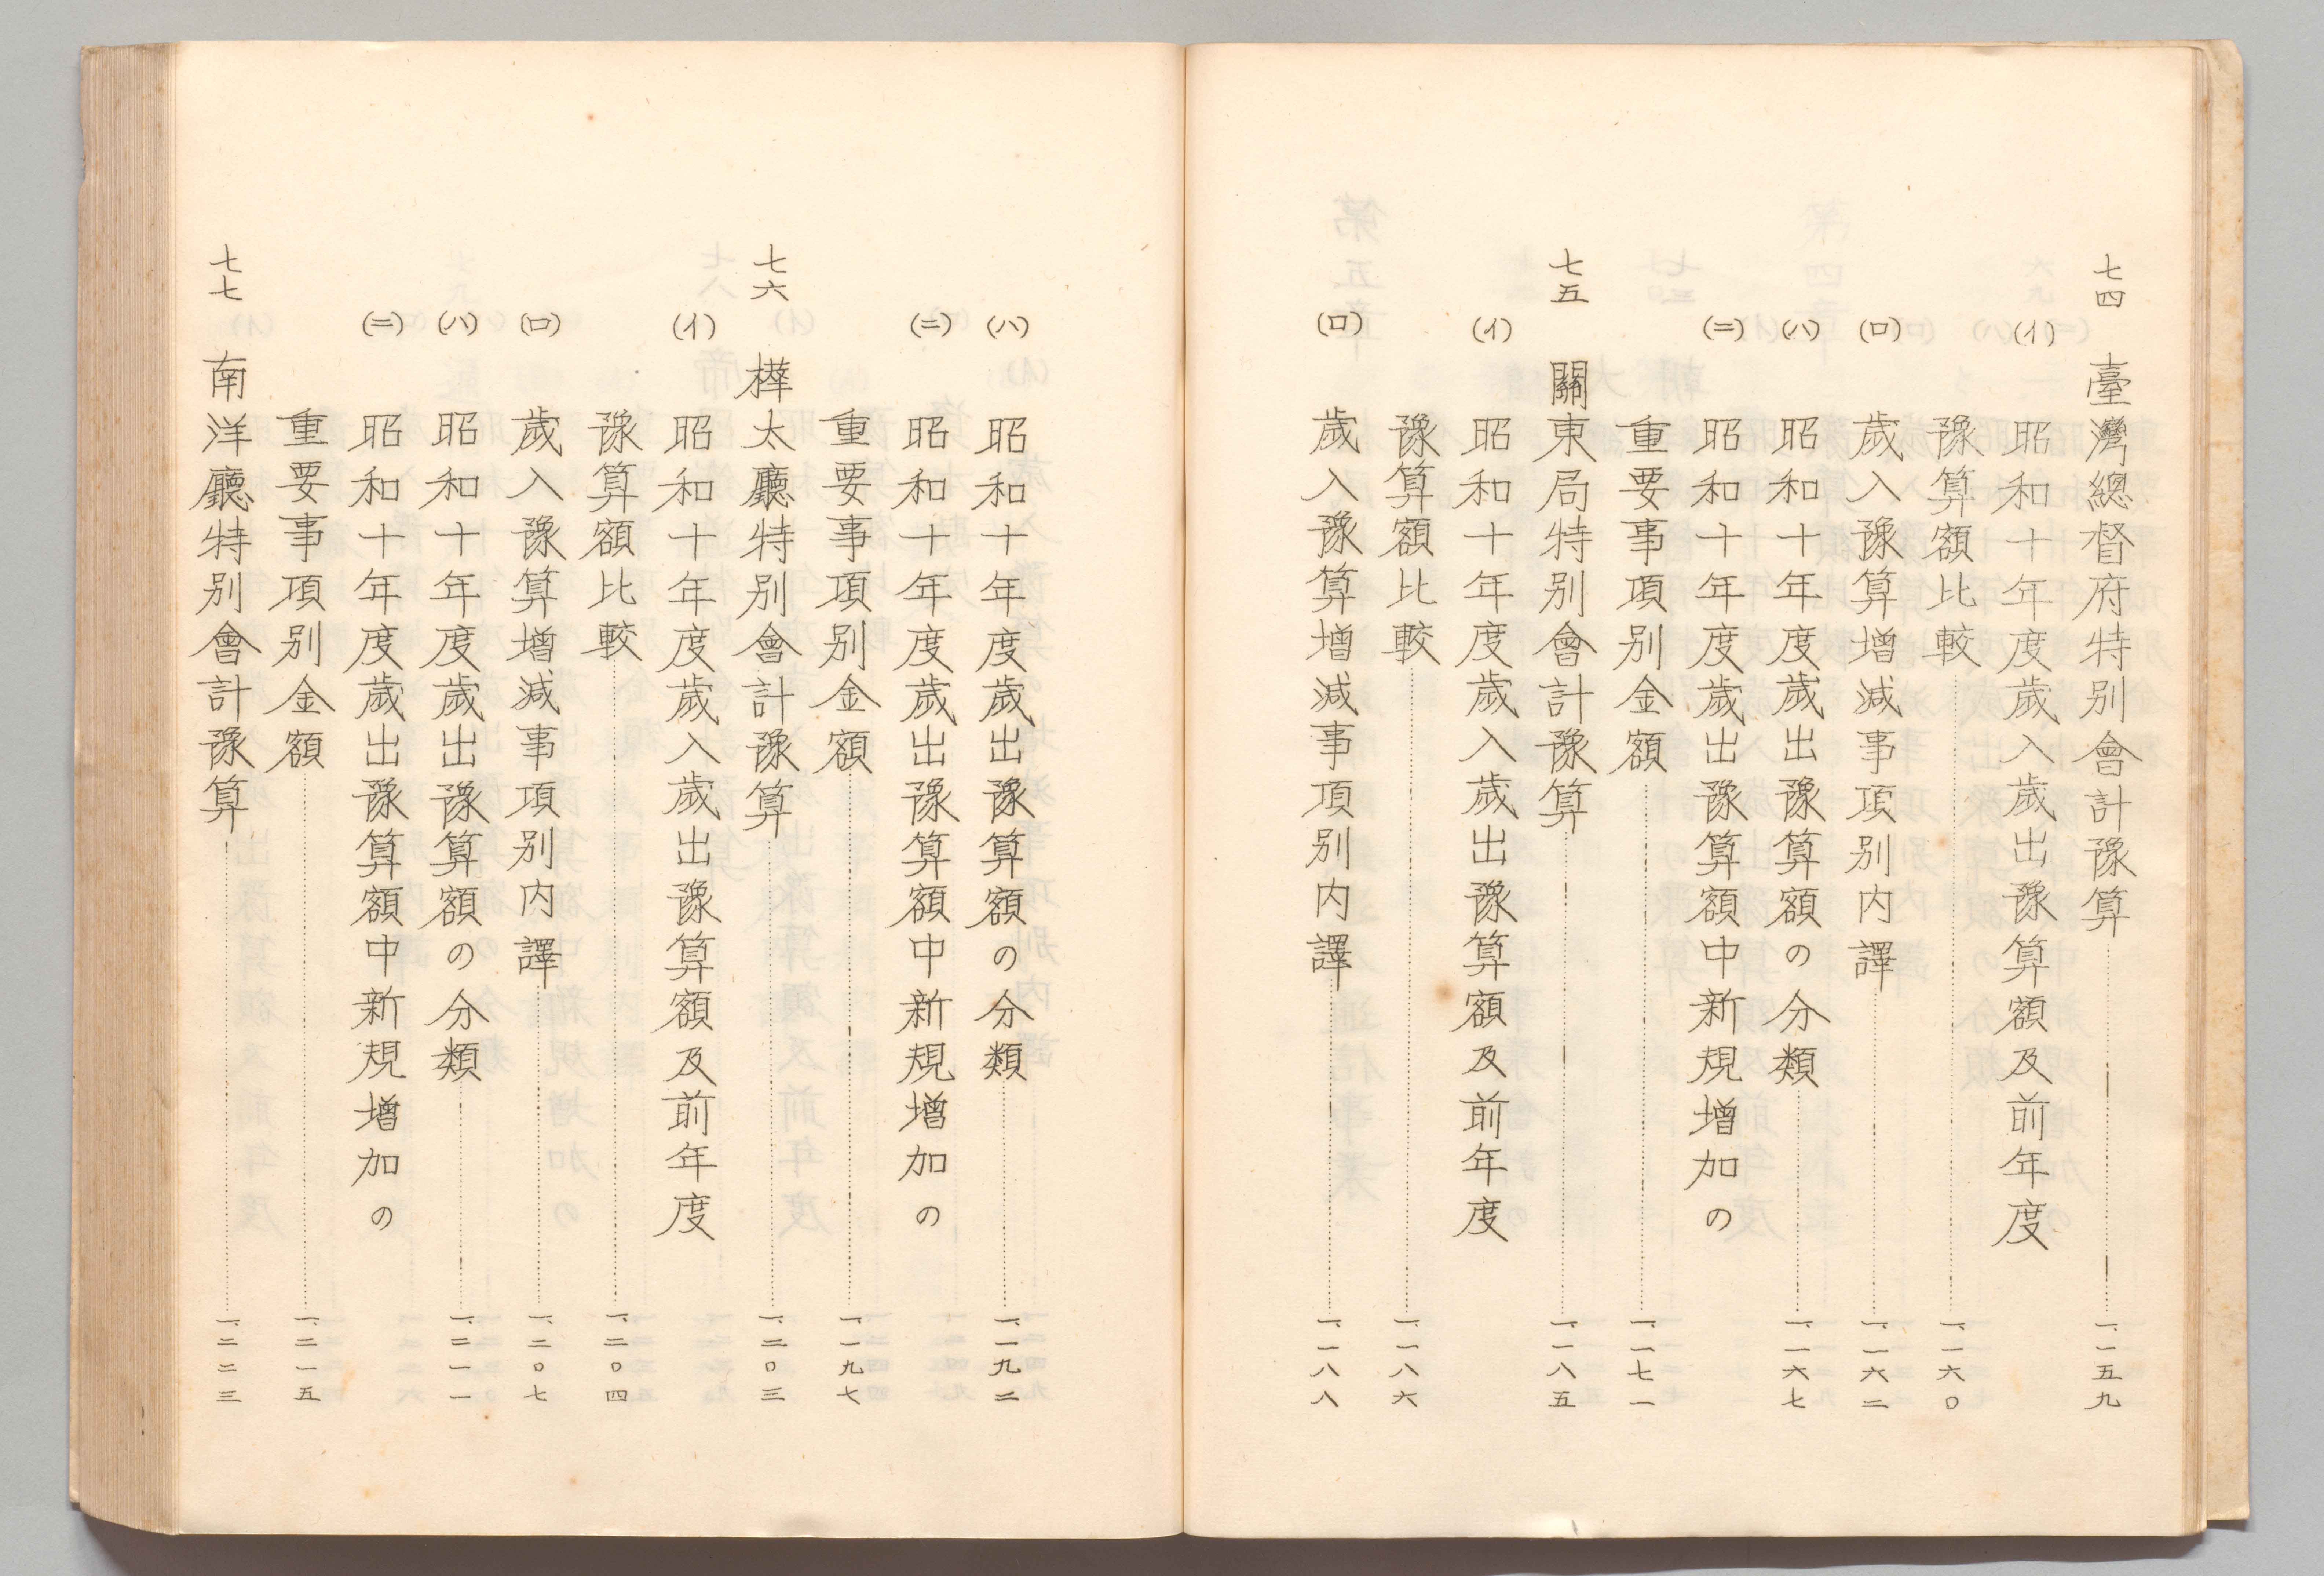 七四 臺灣總督府特別會計豫算 一、一五九
(イ) 昭和十年度歲入歲出豫算額及前年度
豫算額比較 一、一六〇
(ロ) 歲入豫算增減事項別內譯 一、一六二
(ハ) 昭和十年度歲出豫算額の分類 一、一六七
(ニ) 昭和十年度歲出豫算額中新規增加の
重要事項別金額 一、一七一
七五 關東局特別會計豫算 一、一八五
(イ) 昭和十年度歲入歲出豫算額及前年度
豫算額比較 一、一八六
(ロ) 歲入豫算增減事項別內譯 一、一八八
(ハ) 昭和十年度歲出豫算額の分類 一、一九二
(ニ) 昭和十年度歲出豫算額中新規增加の
重要事項別金額 一、一九七
七六 樺太廳特別會計豫算 一、二〇三
(イ) 昭和十年度歲入歲出豫算額及前年度
豫算額比較 一、二〇四
(ロ) 歲入豫算增減事項別內譯 一、二〇七
(ハ) 昭和十年度歲出豫算額の分類 一、二一一
(ニ) 昭和十年度歲出豫算額中新規增加の
重要事項別金額 一、二一五
七七 南洋廳特別會計豫算 一、二二三